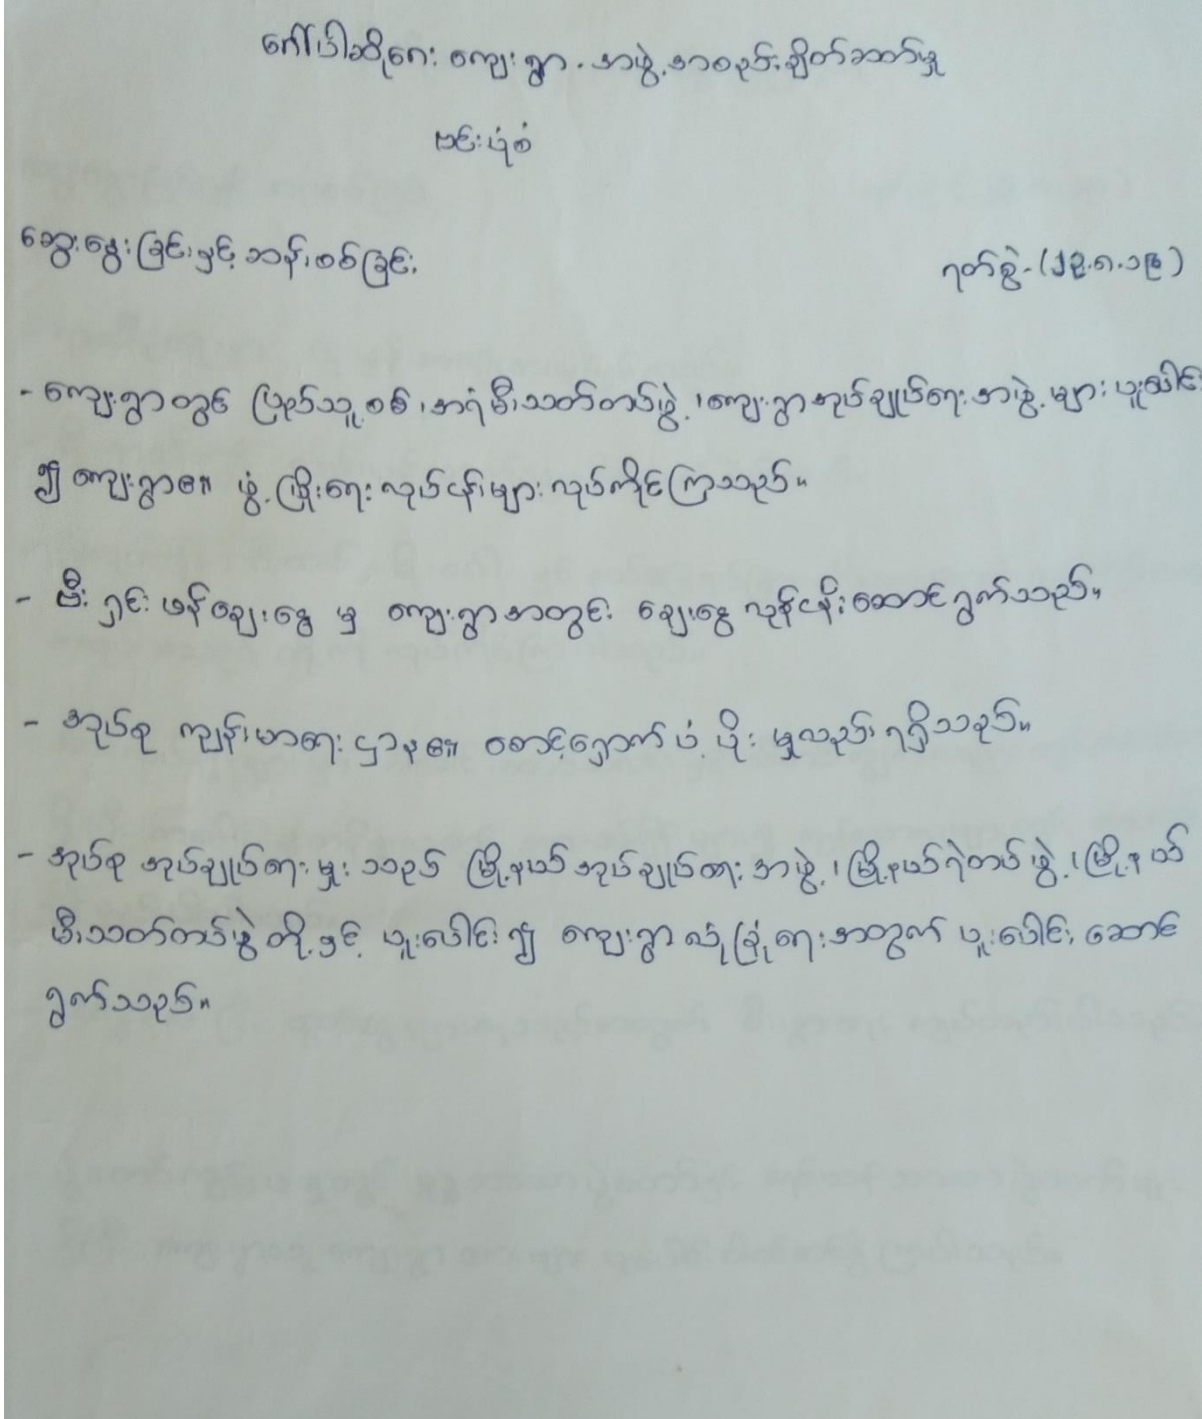 ဒေါ်ပါဆိုဒေး ကျေးရွာ - အဖွဲ့အစည်းချိတ်ဆက်မှု
ဗင်းပုံစံ
ဆွေးနွေးခြင်းနှင့် ဆန်းစစ်ခြင်း
ရက်စွဲ - (၂၉.၈.၁၉)
- ကျေးရွာတွင် ပြည်သူ့စစ်၊ အရံမီးသတ်တပ်ဖွဲ့၊ ကျေးရွာအုပ်ချုပ်ရေးအဖွဲ့များ ပူးပေါင်း
၍ ကျေးရွာ၏ ဖွံ့ဖြိုးရေးလုပ်ငန်းများ လုပ်ကိုင်ကြသည်။
- မီးရှင်းဖန်ချေးငွေ မှ ကျေးရွာအတွင်း ချေးငွေ လုပ်ငန်းဆောင်ရွက်သည်။
- အုပ်စု ကျန်းမာရေးဌာန၏ စောင့်ရှောက် ပံ့ပိုးမှုလည်း ရရှိသည်။
- အုပ်စု အုပ်ချုပ်ရေးမှူးသည် မြို့နယ်အုပ်ချုပ်ရေးအဖွဲ့၊ မြို့နယ်ရဲတပ်ဖွဲ့၊ မြို့နယ်
မီးသတ်တပ်ဖွဲ့တို့နှင့် ပူးပေါင်း၍ ကျေးရွာလုံခြုံရေးအတွက် ပူးပေါင်းဆောင်
ရွက်သည်။